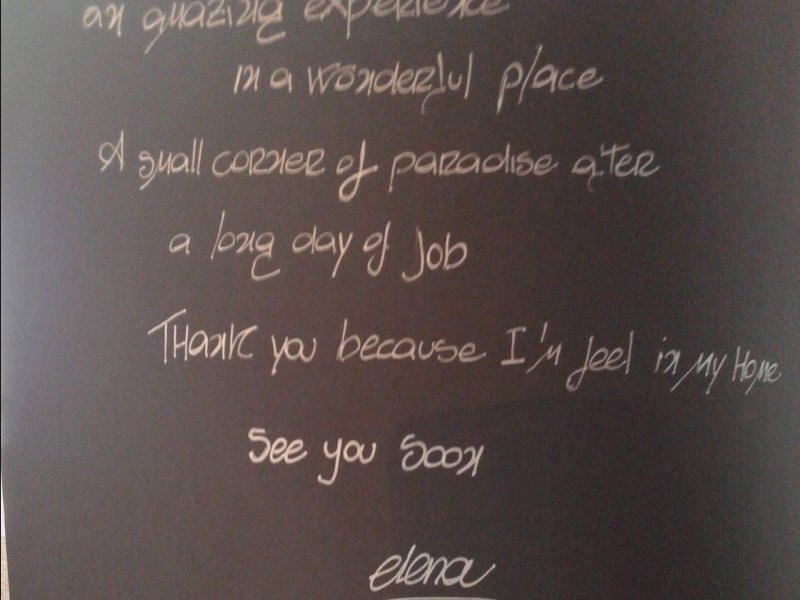 an amazing experience
in a wonderful place
A small corner of paradise after
a long day of Job
Thank you because I'm feel in my Home
See you soon
elena